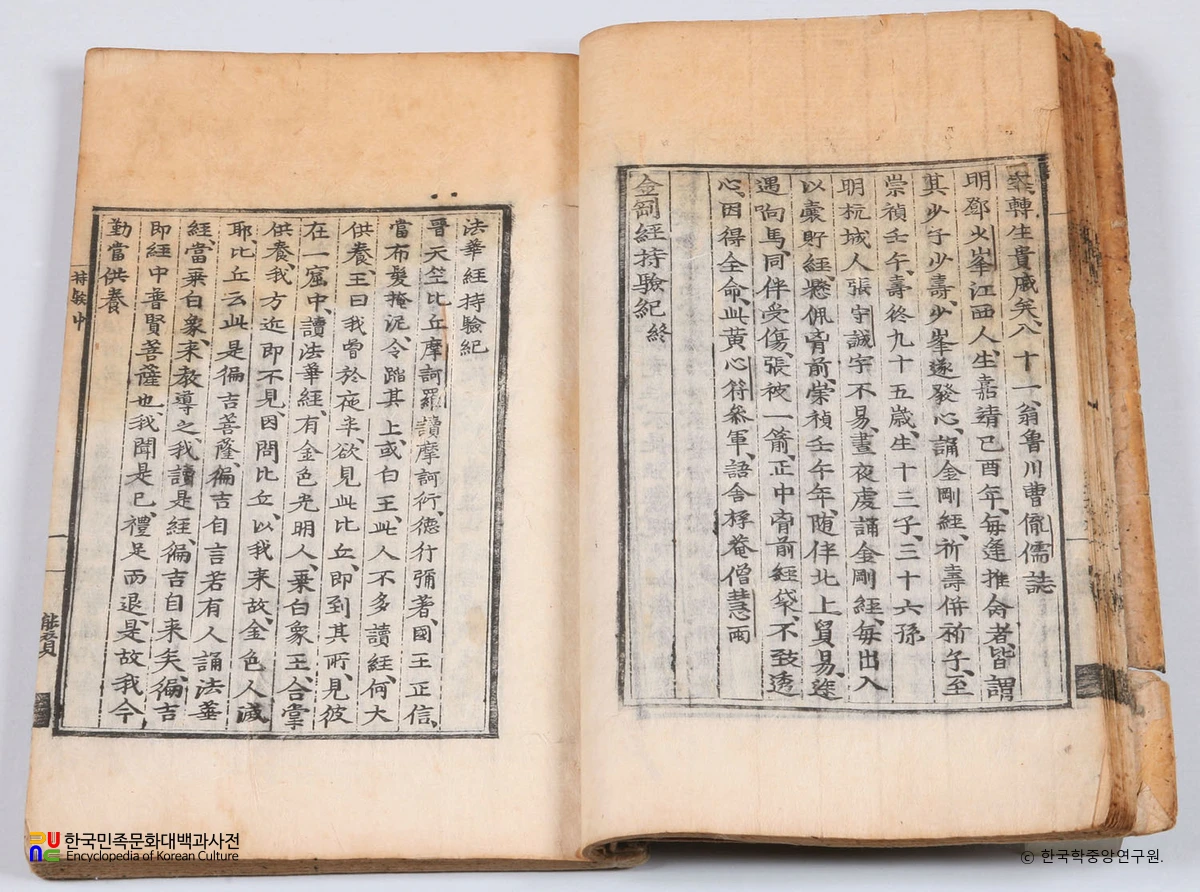 案轉生貴戚矣、八十一翁魯川曹胤儒誌
明鄧火峯江西人、生嘉靖己酉年、每逢推命者、皆謂
其少子少壽、少峯遂發心、誦金剛經、祈壽併祈子、至
崇禎壬午、壽終九十五歲、生十三子、三十六孫
明杭城人張守誠字不易、晝夜虔誦金剛經、每出入
以囊貯經、懸佩胷前、崇禎壬午年、隨伴北上貿易、途
遇响馬、同伴受傷、張被一箭、正中胷前經袋、不致透
心、因得全命、此黃心符叅軍、語舍桴菴僧慧雨
金剛經持驗紀 終
法華經持驗紀
晉天竺比丘摩訶羅讀摩訶衍、德行彌著、國王正信、
當布髮掩泥、令蹈其上、或白王、此人不多讀經、何大
供養、王曰我曾於夜半、欲見此比丘、即到其所、見彼
在一窟中、讀法華經、有金色光明人、乗白象王、合掌
供養、我方近即不見、因問比丘、以我来故、金色人滅
耶、比丘云此是徧吉菩薩、徧吉自言若有人誦法華
經、當乗白象、来教導之、我讀是經、徧吉自来矣、徧吉
即經中普賢菩薩也、我聞是已、禮足而退、是故我今
勤當供養
持驗中
一
能資
한국민족문화대백과사전
Encyclopedia of Korean Culture
© 한국학중앙연구원.